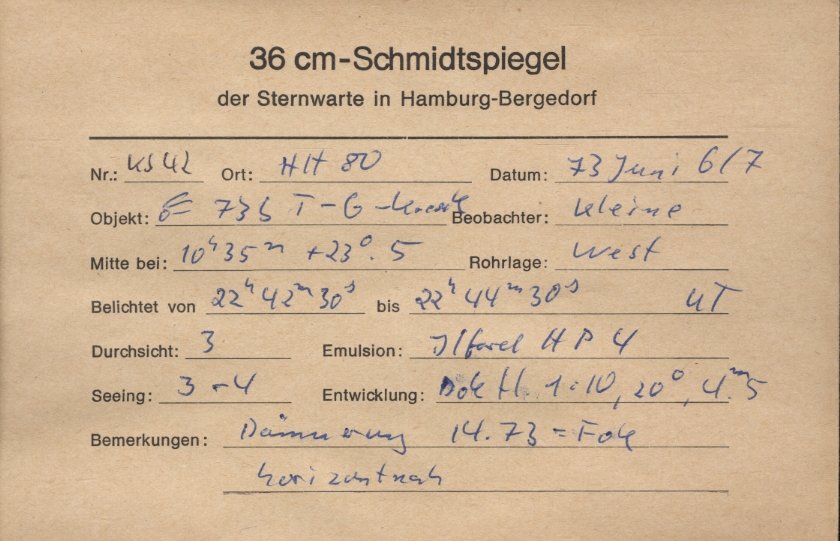 36 cm-Schmidtspiegel
der Sternwarte in Hamburg-Bergedorf
Nr.: KS 42 Ort: HH 80 Datum: 73 Juni 6/7
Objekt: 73b T-G-K Beobachter: Kleine
Mitte bei: 10ʰ35ᵐ +23°.5 Rohrlage: West
Belichtet von 22ʰ42ᵐ30ˢ bis 22ʰ44ᵐ30ˢ UT
Durchsicht: 3 Emulsion: Ilford HP4
Seeing: 3-4 Entwicklung: 1:10, 20°, 4.ᵐ5
Bemerkungen: Dämmerung 14.73 = Fok
horizontnah